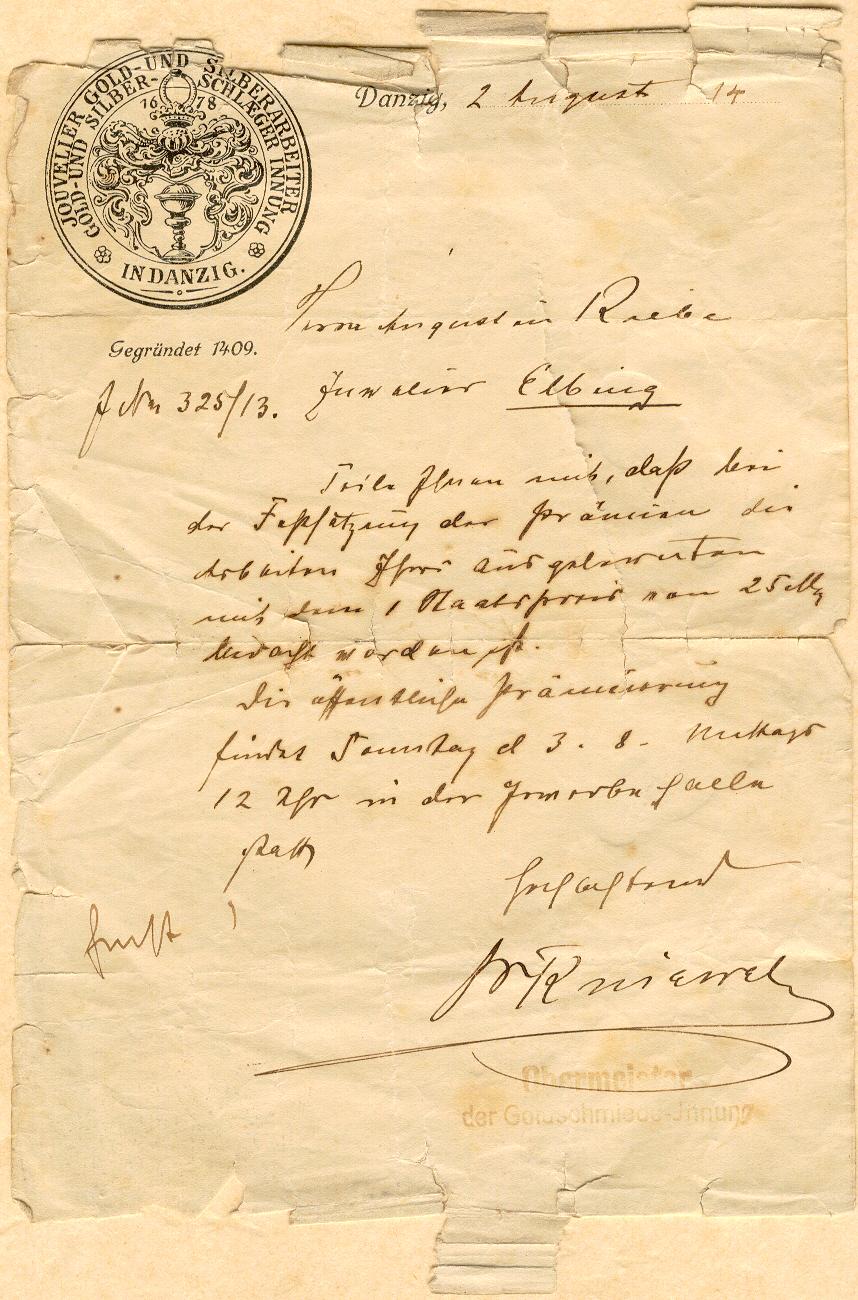 JOUVELIER GOLD-UND SILBERARBEITER
GOLD-UND SILBER-SCHLÄGER INNUNG
1678
IN DANZIG.
Danzig, 2 August 14
Gegründet 1409.
Herrn Augustin Riebe
J Nr 325/13. Juwelier Elbing
Teile Ihnen mit, daß bei
der Festsetzung der Prämien die
Arbeiten Ihres ausgelernten
mit dem 1 Staatspreis von 25 Mk
bedacht worden ist.
Die öffentliche Prämiierung
findet Sonntag d 3. 8. Mittags
12 Uhr in der Gewerbehalle
statt
Hochachtend
Kniewel
Obermeister
der Goldschmiede-Innung